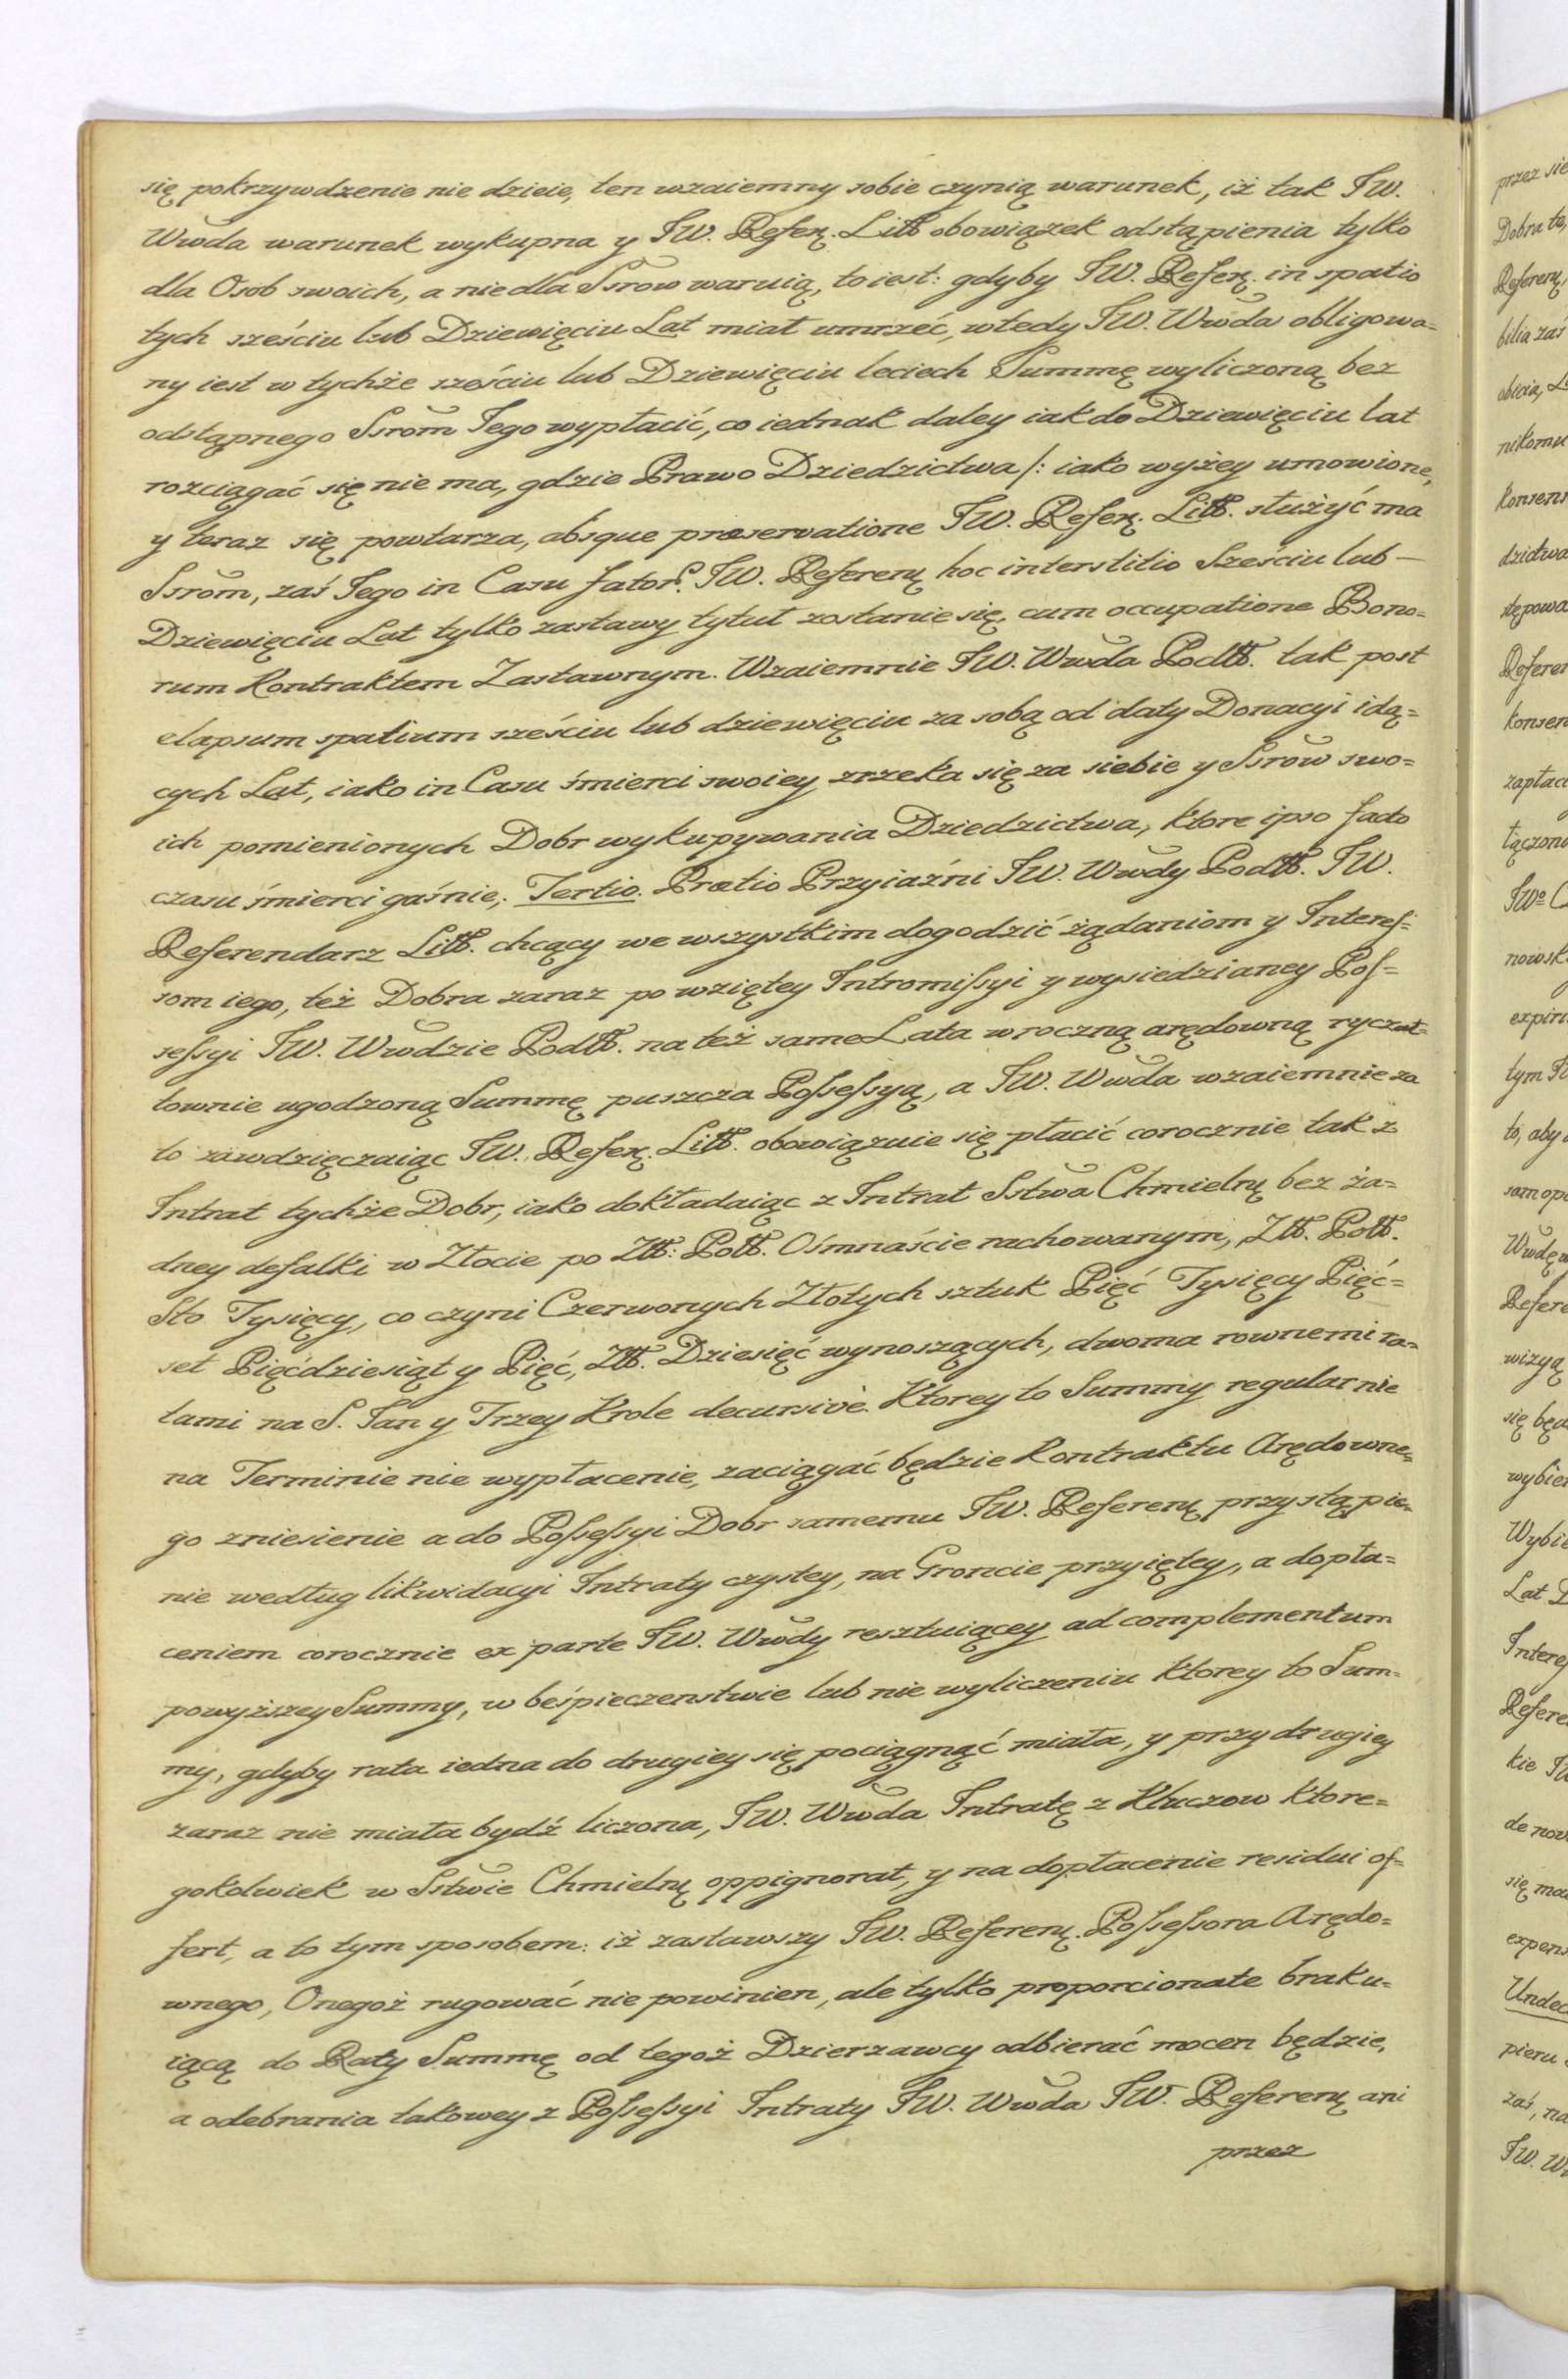 się pokrzywdzenie nie dzieie, ten wzaiemny sobie czynią warunek, iż tak JW.
Wwda warunek wykupna y JW. Referꝫ. Litt obowiązek odstąpienia tylko
dla Osob swoich, a nie dla Ssrow waruią, to iest: gdyby JW. Referꝫ. in spatio
tych sześciu lub Dziewięciu Lat miał umrzeć, wtedy JW. Wwda obligowa=
ny iest w tychże sześciu lub Dziewięciu leciech Summę wyliczoną bez
odstąpnego Ssrom Jego wypłacić, co iednak daley iak do Dziewięciu lat
rozciągać się nie ma, gdzie Prawo Dziedzictwa /: iako wyżey umowione,
y teraz się powtarza, absque præservatione JW. Referꝫ. Litt. służyć ma
Ssrom, zaś Jego in Casu fator. JW. Referenꝫ hoc interstitio Sześciu lub —
Dziewięciu Lat tylko zastawy tytuł zostanie się, cum occupatione Bono=
rum Kontraktem Zastawnym. Wzaiemnie JW. Wwda Podlł. tak post
elapsum spatium sześciu lub dziewięciu za sobą od daty Donacyi idą=
cych Lat, iako in Casu śmierci swoiey zrzeka się za siebie y Ssrow swo=
ich pomienionych Dobr wykupywania Dziedzictwa, ktore ipso facto
czasu śmierci gaśnie, Tertio. Prætio Przyiaźni JW. Wwdy Podlł. JW.
Referendarz Litt. chcący we wszystkim dogodzić żądaniom y Interes=
som iego, też Dobra zaraz po wziętey Intromissyi y wysiedzianey Pos=
sessyi JW. Wwdzie Podlł. na też same Lata w roczną arędowną ryczał=
townie ugodzoną Summę puszcza Possessyą, a JW. Wwda wzaiemnie za
to zawdzięczaiąc JW. Referꝫ. Litt. obowiązuie się płacić corocznie tak z
Intrat tychże Dobr, iako dokładaiąc z Intrat Sstwa Chmielnꝫ bez ża=
dney defalki w Złocie po Złł: Poll. Ośmnaście rachowanym, Złł. Poll.
Sto Tysięcy, co czyni Czerwonych Złotych sztuk Pięć Tysięcy Pięć=
set Pięćdziesiąt y Pięć, Złł. Dziesięć wynoszących, dwoma rownemi ra=
tami na S. Jan y Trzey Krole decursivè. Ktorey to Summy regularnie
na Terminie nie wypłacenie, zaciągać będzie Kontraktu Arędowne=
go zniesienie a do Possessyi Dobr samemu JW. Referenꝫ przystąpie=
nie według likwidacyi Intraty czystey, na Groncie przyiętey, a dopła=
ceniem corocznie ex parte JW. Wwdy resztuiącey ad complementum
powyższey Summy, w beśpieczenstwie lub nie wyliczeniu ktorey to Sum=
my, gdyby rata iedna do drugiey się pociągnąć miała, y przy drugiey
zaraz nie miała bydź liczona, JW. Wwda Intratę z Kluczow ktore=
gokolwiek w Sstwie Chmielnꝫ oppignorat, y na dopłacenie residui of=
fert, a to tym sposobem: iż zastawszy JW. Referenꝫ. Possessora Arędo=
wnego, Onegoż rugować nie powinien, ale tylko proporcionate braku=
iącą do Raty Summę od tegoż Dzierzawcy odbierać mocen będzie,
a odebrania takowey z Possessyi Intraty JW. Wwda JW. Referenꝫ ani
przez